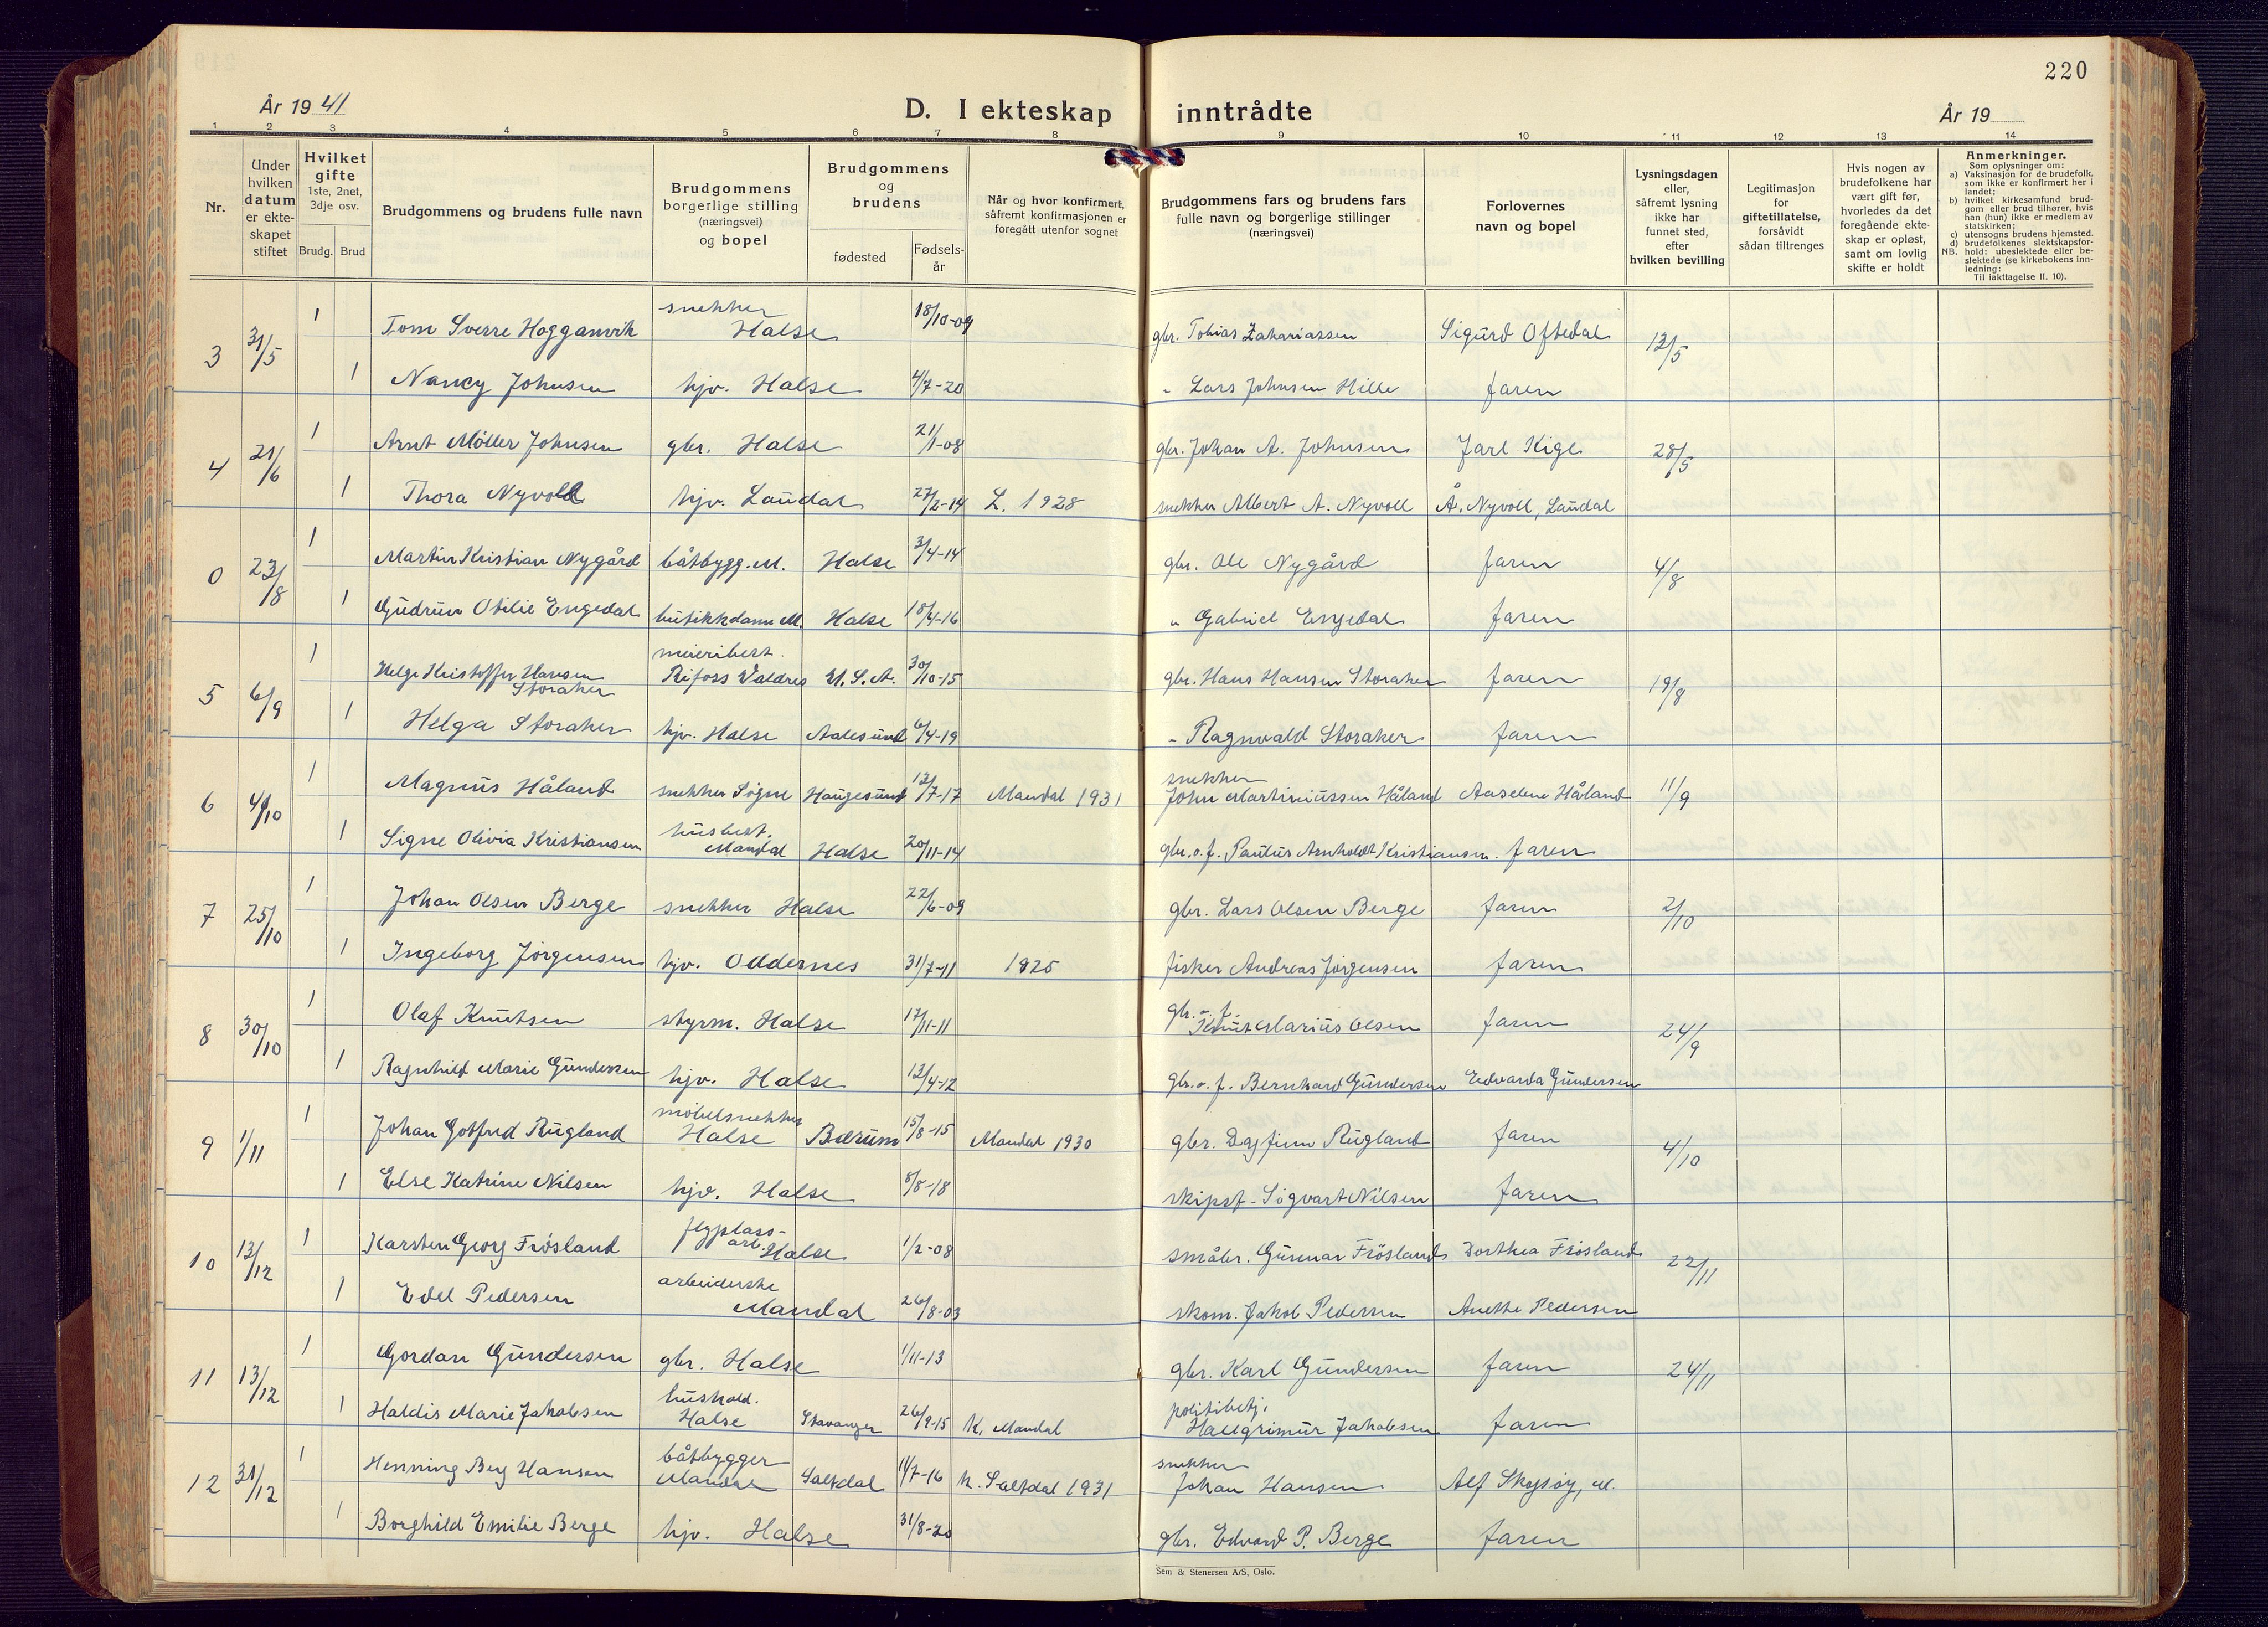 220
År 1941
D. I ekteskap inntrådte
År 19
1 2 3 4 5 6 7 8 9 10 11 12 13 14
Nr.
Under hvilken datum er ekteskapet stiftet
Hvilket gifte 1ste, 2net, 3dje osv.
Brudg. Brud
Brudgommens og brudens fulle navn
Brudgommens borgerlige stilling (næringsvei) og bopel
Brudgommens og brudens
fødested
Fødselsår
Når og hvor konfirmert, såfremt konfirmasjonen er foregått utenfor sognet
Brudgommens fars og brudens fars fulle navn og borgerlige stillinger (næringsvei)
Forlovernes navn og bopel
Lysningsdagen eller, såfremt lysning ikke har funnet sted, efter hvilken bevilling
Legitimasjon for giftetillatelse, forsåvidt sådan tiltrenges
Hvis nogen av brudefolkene har vært gift før, hvorledes da det foregående ekteskap er opløst, samt om lovlig skifte er holdt
Anmerkninger.
Som oplysninger om:
a) Vaksinasjon for de brudefolk, som ikke er konfirmert her i landet;
b) hvilket kirkesamfund brudgom eller brud tilhører, hvis han (hun) ikke er medlem av statskirken;
c) utensogns brudens hjemsted.
d) brudefolkenes slektskapsforhold: ubeslektede eller beslektede (se kirkebokens innledning:
NB. Til iakttagelse II. 10).
3 31/5 1 Tom Sverre Hogganvik snekker Halse 18/10-09 gbr. Tobias Zakariassen Sigurd Oftedal 13/5
1 Nancy Johnsen hjv. Halse 4/7-20 " Lars Johnsen Hille faren
4 21/6 1 Arnt Møller Johnsen gbr. Halse 21/1-08 gbr. Johan A. Johnsen Jarl Kige 28/5
1 Thora Nyvoll hjv. Laudal 27/2-14 L. 1928 snekker Albert A. Nyvoll A. Nyvoll, Laudal
0 23/8 1 Martin Kristian Nygård båtbygg. M. Halse 3/4-14 gbr. Ole Nygård faren 4/8
1 Gudrun Otilie Engedal butikkdame M. Halse 18/4-16 " Gabriel Engedal faren
5 6/9 1 Helge Kristoffer Hansen Storaker meieribest. Rifoss Valdres U.S.A. 30/10-15 gbr. Hans Hansen Storaker faren 19/8
1 Helga Storaker hjv. Halse Aalesund 6/4-19 " Ragnvald Storaker faren
6 4/10 1 Magnus Håland snekker Søgne Haugesund 13/7-17 Mandal 1931 snekker John Martiniussen Håland Aaselene Håland 11/9
1 Signe Olivia Kristiansen husbest. Mandal Halse 20/11-14 gbr. o. f. Paulus Arnholdt Kristiansen faren
7 25/10 1 Johan Olsen Berge snekker Halse 22/6-09 gbr. Lars Olsen Berge faren 2/10
1 Ingeborg Jørgensen hjv. Oddernes 31/7-11 1925 fisker Andreas Jørgensen faren
8 30/10 1 Olaf Knutsen styrm. Halse 17/11-11 gbr. o. f. Knut Marius Olsen faren 24/9
1 Ragnhild Marie Gundersen hjv. Halse 13/4-12 gbr. o. f. Bernhard Gundersen Edvarda Gundersen
9 1/11 1 Johan Gotfred Rugland møbelsnekker Halse Bærum 15/8-15 Mandal 1930 gbr. Dagfinn Rugland faren 4/10
1 Else Katrine Nilsen hjv. Halse 8/8-18 skipsf. Sigvart Nilsen faren
10 13/12 1 Karsten Georg Frøsland flyplass-arb. Halse 1/2-08 småbr. Gunnar Frøsland Dorthea Frøsland 22/11
1 Edel Pedersen arbeiderske Mandal 26/8-03 skom. Jakob Pedersen Anethe Pedersen
11 13/12 1 Gordan Gundersen gbr. Halse 1/11-13 gbr. Karl Gundersen faren 24/11
1 Haldis Marie Jakobsen hushold. Halse Stavanger 26/9-15 K. Mandal politibetj. Hallgrimur Jakobsen faren
12 31/12 1 Henning Berg Hansen båtbygger Mandal Saltdal 11/7-16 k. Saltdal 1931 snekker Johan Hansen Alf Skogsøy, M.
1 Borghild Emilie Berge hjv. Halse 31/8-20 gbr. Edvard P. Berge faren
Sem & Stenersen A/S, Oslo.